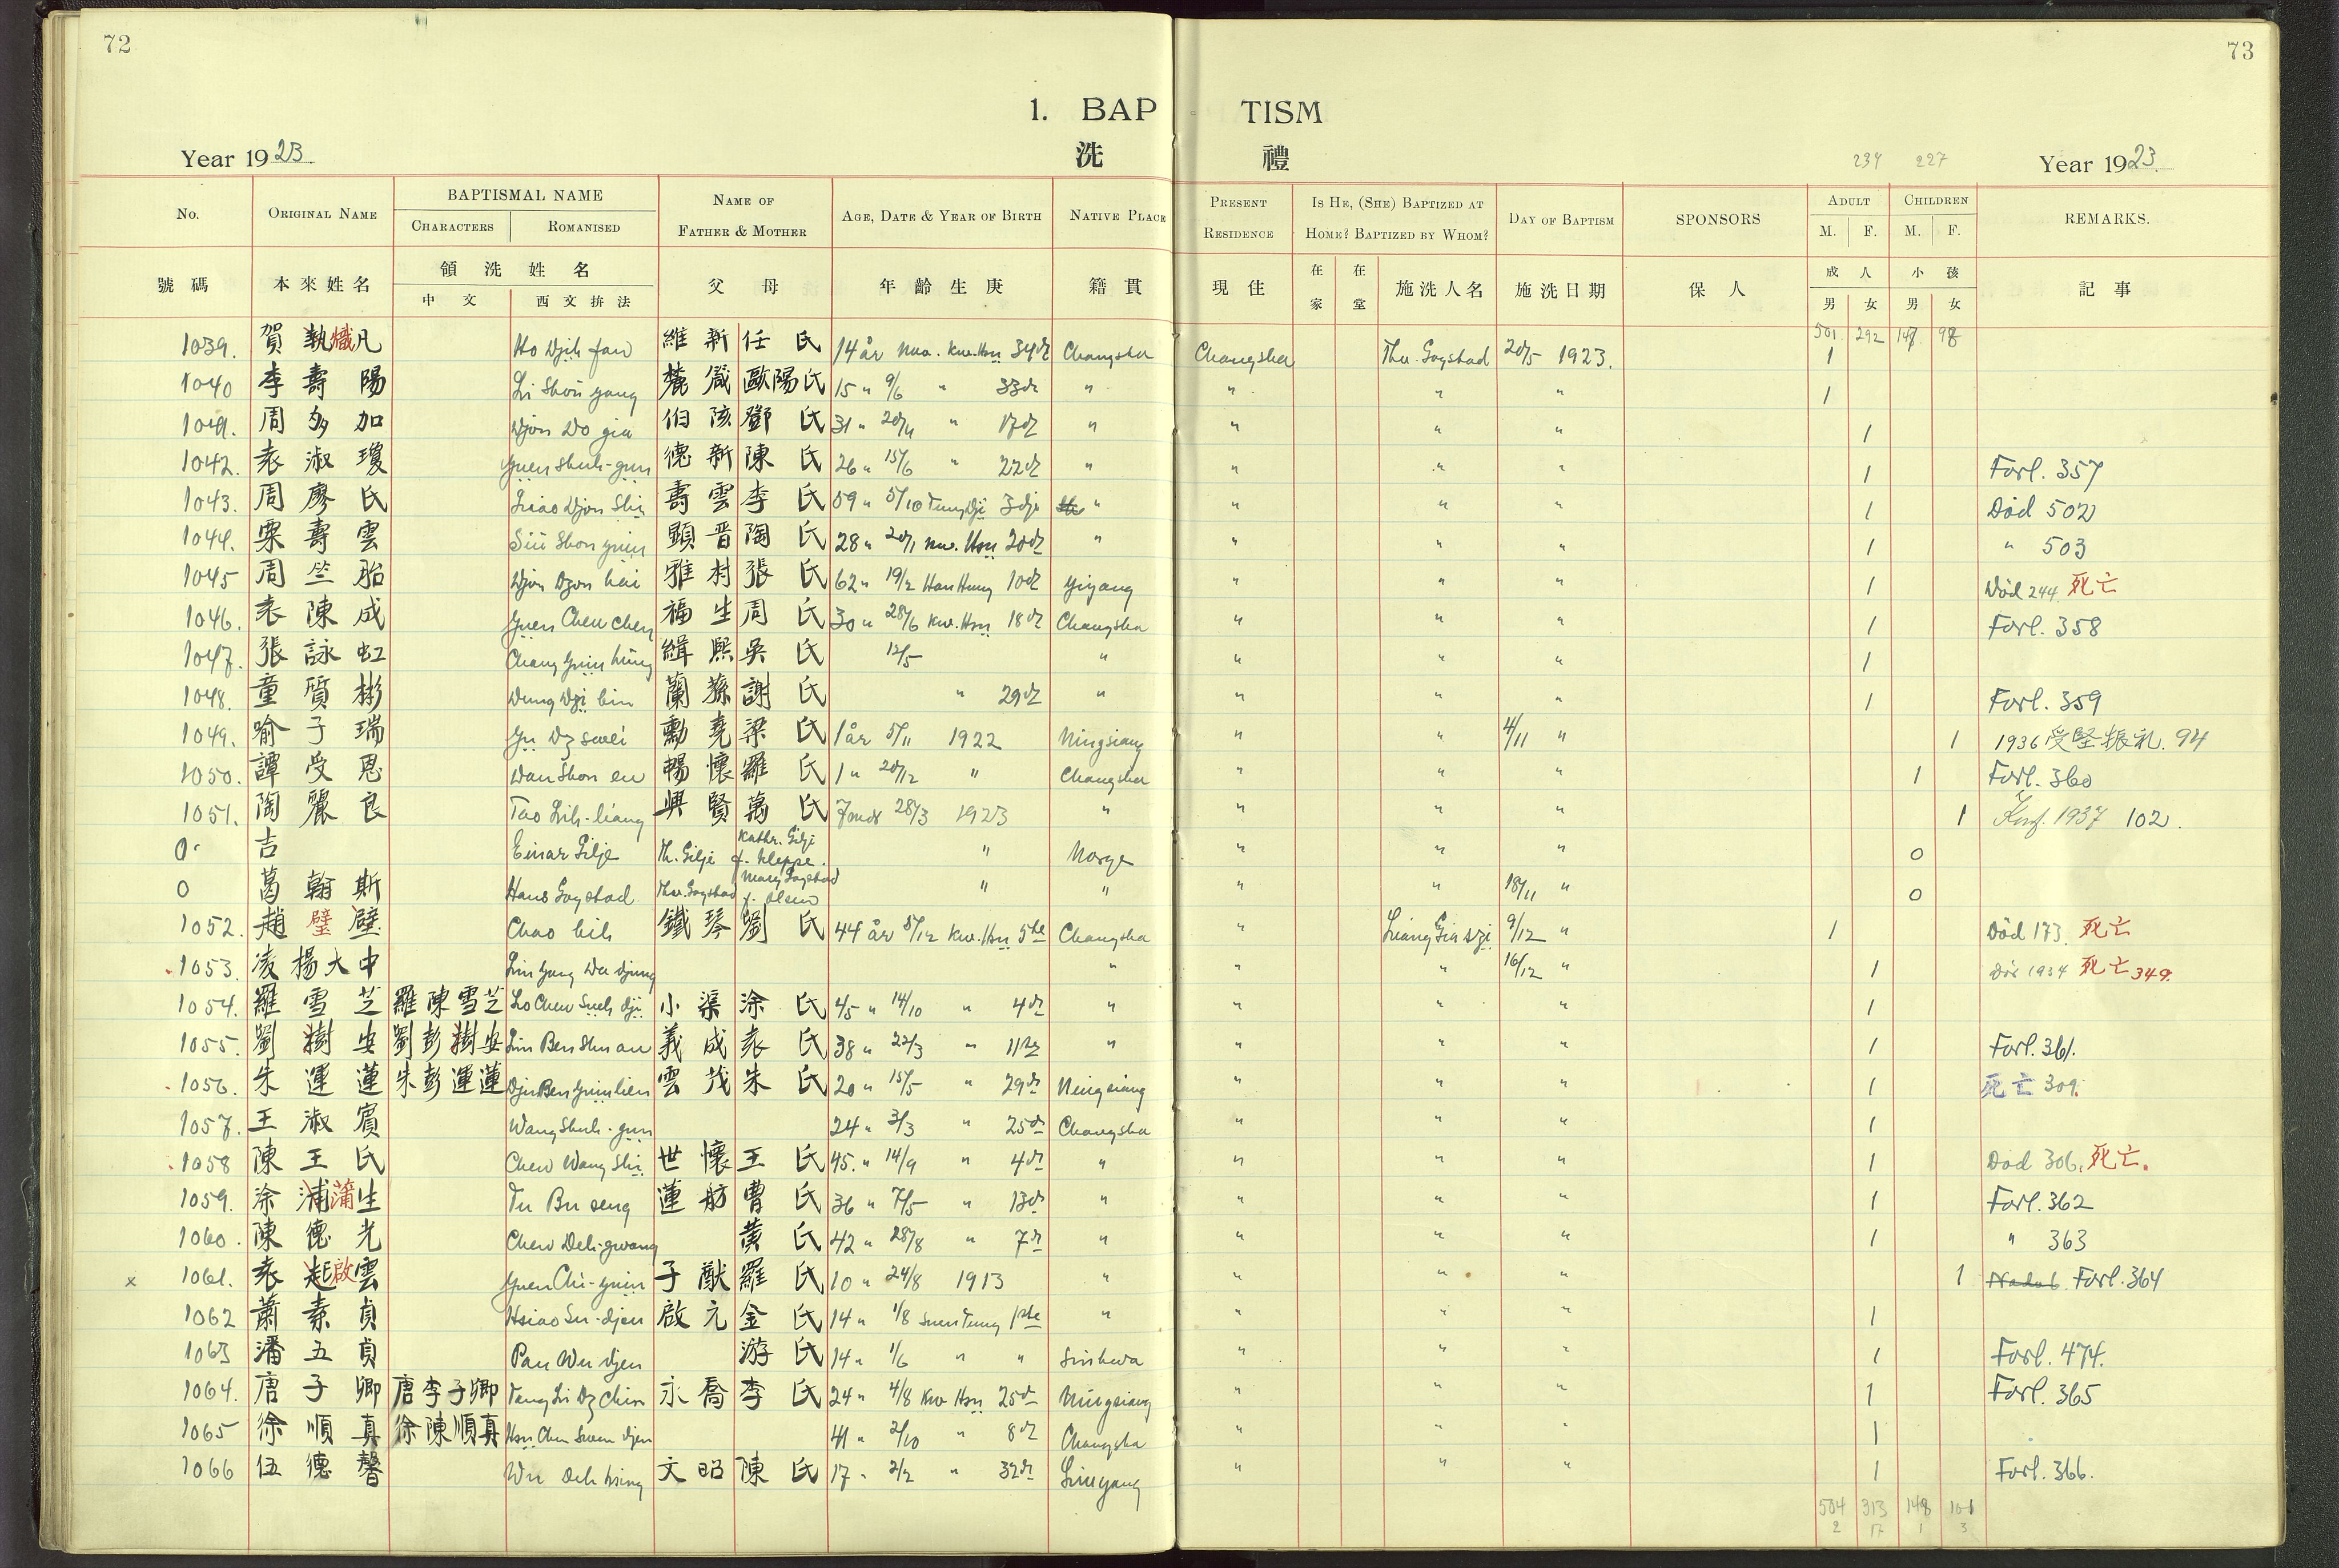 72
73
1. BAP TISM
Year 1923.
洗 禮
234 227
Year 1923.
No. ORIGINAL NAME BAPTISMAL NAME NAME OF FATHER & MOTHER AGE, DATE & YEAR OF BIRTH NATIVE PLACE PRESENT RESIDENCE IS HE, (SHE) BAPTIZED AT HOME? BAPTIZED BY WHOM? DAY OF BAPTISM SPONSORS ADULT CHILDREN REMARKS.
CHARACTERS ROMANISED M. F. M. F.
號碼 本來姓名 領洗姓名 父母 年齡生庚 籍貫 現住 在家 在堂 施洗人名 施洗日期 保人 成人 小孩 記事
中文 西文拚法 男 女 男 女
501 292 147 98
1039. 賀執熾凡 Ho Djih fan 維新 任氏 14 år Kw. Hsü 34 Changsha Changsha Thv. Gogstad 20/5 1923. 1
1040 李壽陽 Li Shou yang 歐陽氏 15 " 9/6 " 33 " " " " 1
1041. 周多加 Djou Do gia 伯陔 鄧氏 31 " 20/11 " 17 " " " " 1
1042. 袁淑瓊 Yuen Shuh-gün 德新 陳氏 26 " 15/6 " 22 " " " " 1 Forl. 357
1043. 周廖氏 Liao Djou Shi 壽雲 李氏 59 " 5/10 Tung Dji 3dje " " " " 1 Död 502
1044. 粟壽雲 Sü Shou yün 顯晋 陶氏 28 " 20/1 Kw. Hsü 20 " " " " 1 " 503
1045 周竺胎 雅村 張氏 62 " 19/2 Han Hung 10 Yiyang " " " 1 Död 244. 死亡
1046. 袁陳成 Yuen Chen Chen 福生 周氏 30 " 28/6 Kw. Hsü 18 Changsha " " " 1 Forl. 358
1047. 張詠虹 Chang Yuin hung 緝熙 吳氏 12/5 " " " " 1
1048. 童質彬 Dung Dzi bin 蘭蓀 謝氏 " 29 " " " " 1 Forl. 359
1049. 喻子瑞 Yü Dz suei 勳堯 梁氏 1 år 5/11 1922 Ningsiang " " 4/11 " 1 1936 受堅振礼. 94
1050. 譚受恩 Dan Shou en 暢懷 羅氏 1 " 20/12 " Changsha " " " 1 Forl. 360
1051. 陶麗良 Tao Lih-liang 興賢 萬氏 7 mdr 28/3 1923 " " " " 1 Konf. 1937 102.
0. 吉 Einar Gilje Th. Gilje Kathr. Gilje f. Kleppe. " Norge " " " 0
0 葛翰斯 Hans Gogstad Thv. Gogstad Mary Gogstad f. Olsen " " " " 18/11 " 0
1052. 趙璧 Chao bih 鐵琴 劉氏 44 år 5/12 Kw. Hsü 5te Changsha " Liang Gia dzi 9/12 " 1 Död 173. 死亡
1053. 凌楊大中 Lin Yang Da djung " " " 16/12 " 1 Död 1934 死亡 349.
1054. 羅雪芝 羅陳雪芝 Lo Chen Sueh dji 小渠 涂氏 45 " 14/10 " 4 " " " " 1
1055. 劉樹安 劉彭樹安 Liu Ben Shu an 義成 袁氏 38 " 22/3 " 11 " " " " 1 Forl. 361.
1056. 朱運蓮 朱彭運蓮 Dju Ben Yuin lien 雲茂 朱氏 20 " 15/5 " 29 Ningsiang " " " 1 死亡 309.
1057. 王淑賓 Wang Shuh-gün 24 " 3/3 " 25 Changsha " " " 1
1058 陳王氏 Chen Wang Shi 世懷 王氏 45. " 14/9 " 4 " " " " 1 Död 306. 死亡.
1059. 涂浦蒲生 Tu Bu seng 蓮舫 曹氏 36 " 7/5 " 13 " " " " 1 Forl. 362
1060. 陳德光 Chen Deh-gwang 黃氏 42 " 28/8 " 7 " " " " 1 " 363
x 1061. 袁起啟雲 Yuen Chi-yuin 子猷 羅氏 10 " 24/8 1913 " " " " 1 Forl. 364
1062 蕭素貞 Hsiao Su-djen 啟元 金氏 14 " 1/8 Suen Tung 1ste " " " " 1
1063 潘五貞 Pan Wu djen 游氏 14 " 1/6 " " Sinhwa " " " 1 Forl. 474.
1064. 唐子卿 唐李子卿 Tang Li Dz Chin 永喬 李氏 24 " 4/8 Kw Hsü 25 Ningsiang " " " 1 Forl. 365
1065 徐順真 徐陳順真 Hsü Chen Suen djen 41 " 2/10 " 8 Changsha " " " 1
1066 伍德馨 Wu Deh hsing 文昭 陳氏 17 " 2/2 " 32 Liuyang " " " 1 Forl. 366.
504 313 148 101
2 17 1 3